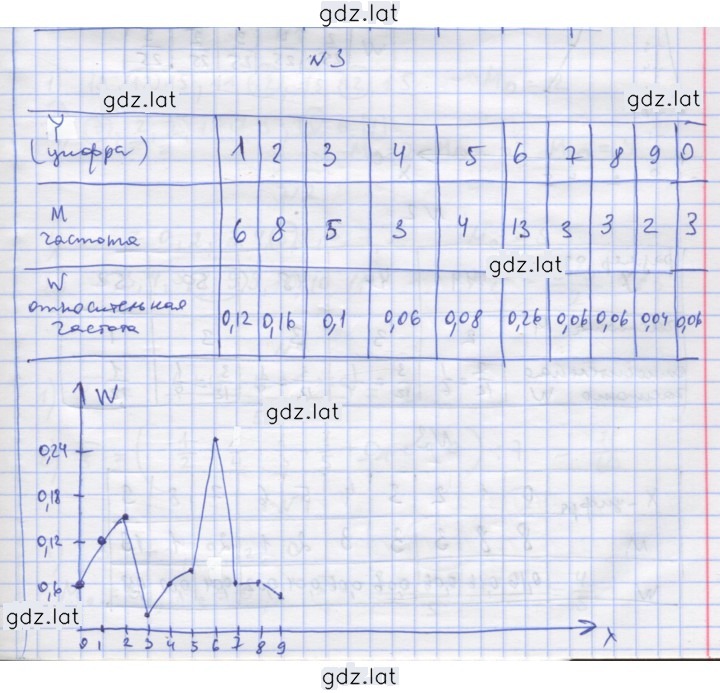 gdz.lat
№3
gdz.lat gdz.lat
Y
(цифра) 1 2 3 4 5 6 7 8 9 0
M
частота 6 8 5 3 4 13 3 3 2 3
gdz.lat
W
относительная
частота 0,12 0,16 0,1 0,06 0,08 0,26 0,06 0,06 0,04 0,06
W
gdz.lat
0,24
0,18
0,12
0,6
gdz.lat
0 1 2 3 4 5 6 7 8 9 X
gdz.lat